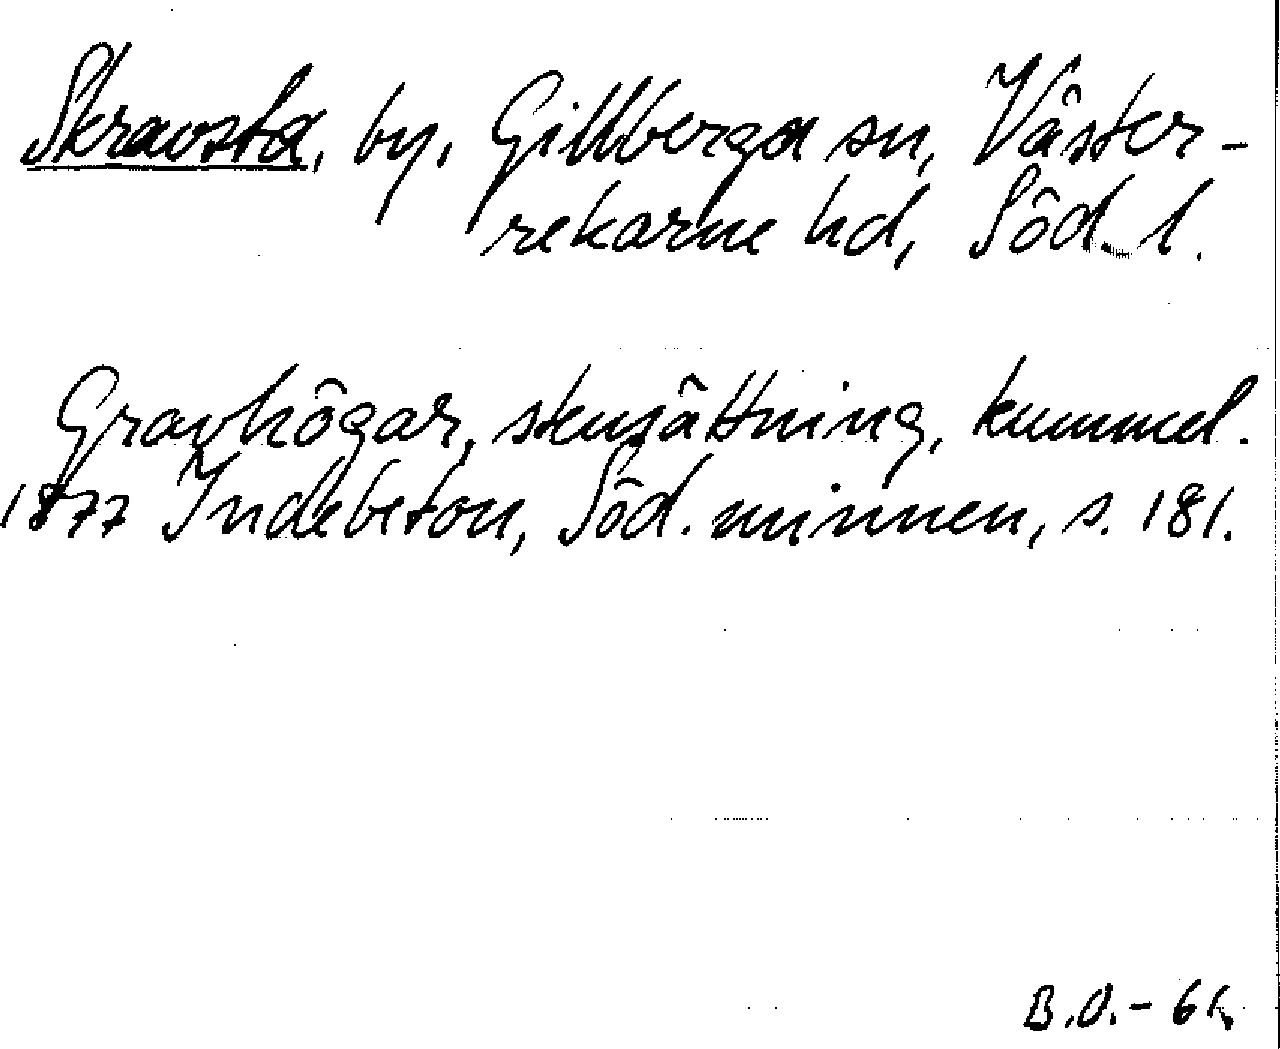 Skravsta, by, Gillberga sn, Väster-
rekarne hd, Söd. l.
Gravhögar, stensättning, kummel.
1877 Indebetou, Söd. minnen, s. 181.
B.O.-